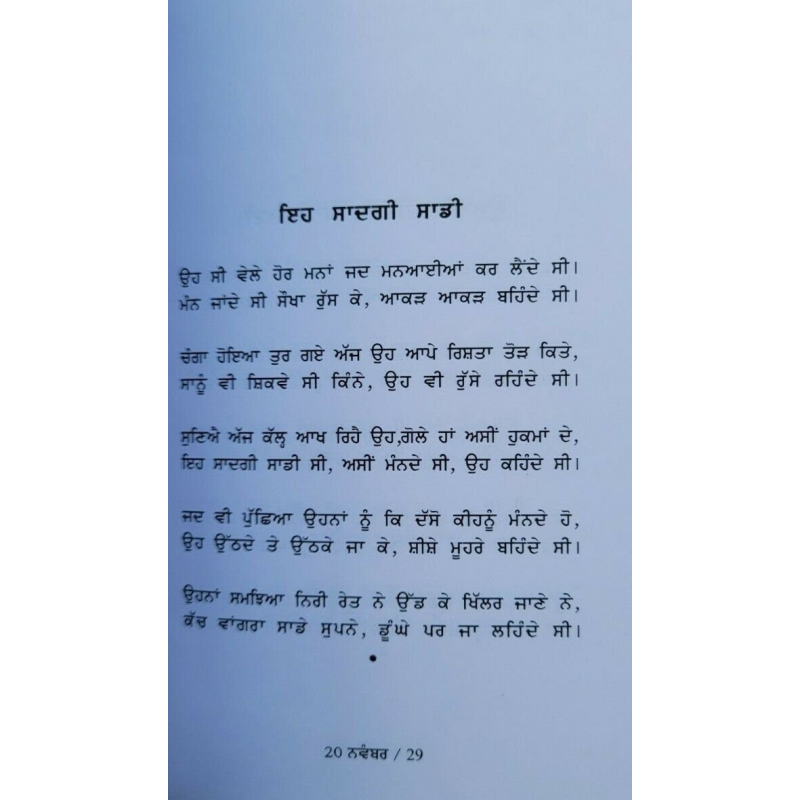 ਇਹ ਸਾਦਗੀ ਸਾਡੀ
ਉਹ ਸੀ ਵੇਲੇ ਹੋਰ ਮਨਾਂ ਜਦ ਮਨਆਈਆਂ ਕਰ ਲੈਂਦੇ ਸੀ।
ਮੰਨ ਜਾਂਦੇ ਸੀ ਸੌਖਾ ਰੁੱਸ ਕੇ, ਆਕੜ ਆਕੜ ਬਹਿੰਦੇ ਸੀ।
ਚੰਗਾ ਹੋਇਆ ਤੁਰ ਗਏ ਅੱਜ ਉਹ ਆਪੇ ਰਿਸ਼ਤਾ ਤੋੜ ਕਿਤੇ,
ਸਾਨੂੰ ਵੀ ਸ਼ਿਕਵੇ ਸੀ ਕਿੰਨੇ, ਉਹ ਵੀ ਰੁੱਸੇ ਰਹਿੰਦੇ ਸੀ।
ਸੁਣਿਐ ਅੱਜ ਕੱਲ੍ਹ ਆਖ ਰਿਹੈ ਉਹ,ਗੋਲੇ ਹਾਂ ਅਸੀਂ ਹੁਕਮਾਂ ਦੇ,
ਇਹ ਸਾਦਗੀ ਸਾਡੀ ਸੀ, ਅਸੀਂ ਮੰਨਦੇ ਸੀ, ਉਹ ਕਹਿੰਦੇ ਸੀ।
ਜਦ ਵੀ ਪੁੱਛਿਆ ਉਹਨਾਂ ਨੂੰ ਕਿ ਦੱਸੋ ਕੀਹਨੂੰ ਮੰਨਦੇ ਹੋ,
ਉਹ ਉੱਠਦੇ ਤੇ ਉੱਠਕੇ ਜਾ ਕੇ, ਸ਼ੀਸ਼ੇ ਮੂਹਰੇ ਬਹਿੰਦੇ ਸੀ।
ਉਹਨਾਂ ਸਮਝਿਆ ਨਿਰੀ ਰੇਤ ਨੇ ਉੱਡ ਕੇ ਖਿੱਲਰ ਜਾਣੇ ਨੇ,
ਕੱਚ ਵਾਂਗਰਾ ਸਾਡੇ ਸੁਪਨੇ, ਡੂੰਘੇ ਪਰ ਜਾ ਲਹਿੰਦੇ ਸੀ।
20 ਨਵੰਬਰ / 29